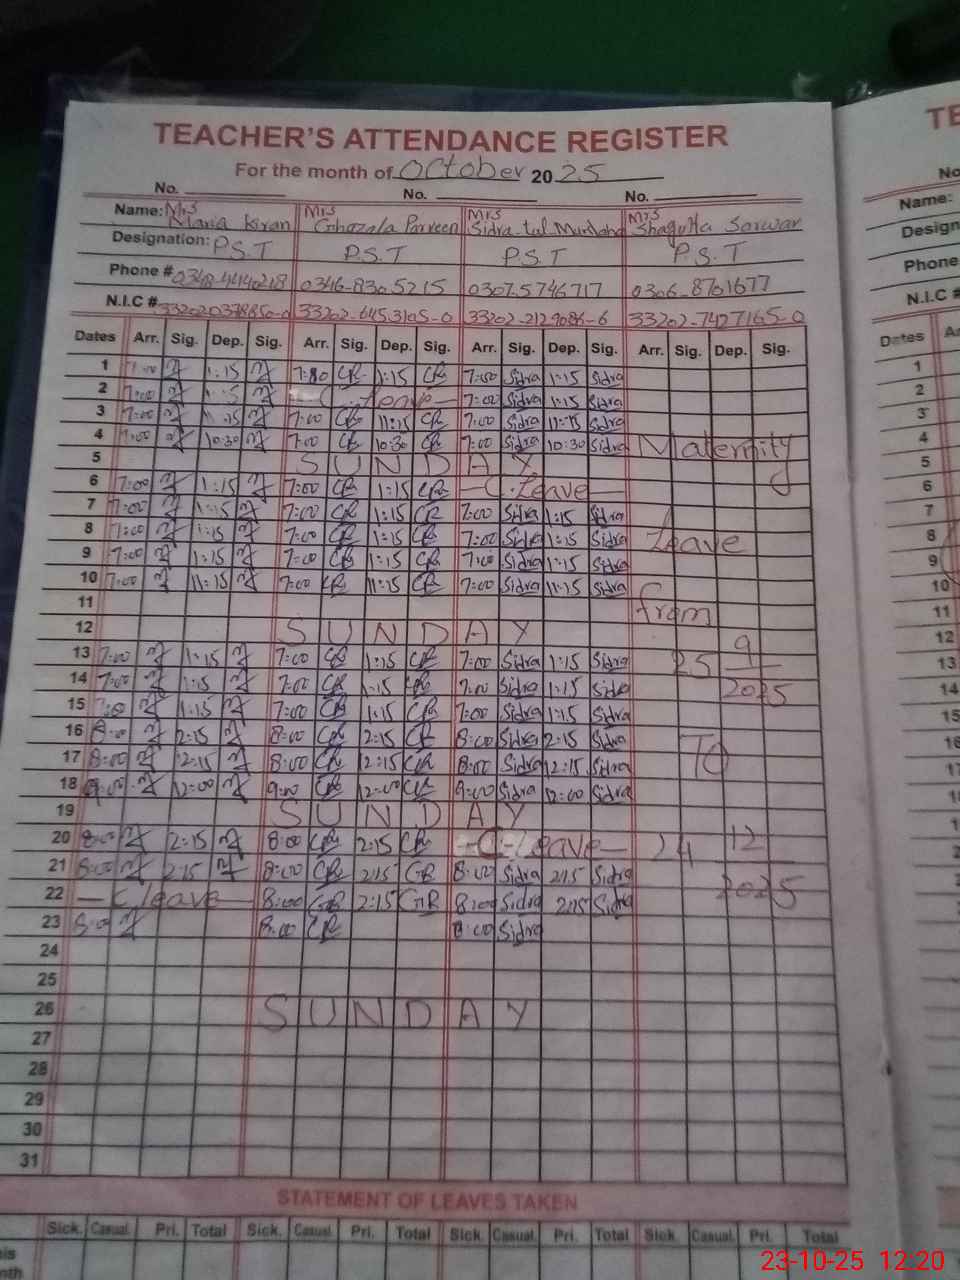 TEACHER'S ATTENDANCE REGISTER
For the month of October 2025
No. No. No.
Name: Mrs Maria Kiran Mrs Ghazala Parveen Mrs Sidra tul Muntaha Mrs Shagufta Sarwar
Designation: P.S.T P.S.T P.S.T P.S.T
Phone # 0348-4440218 0346-8305215 0307-5746717 0306-8701677
N.I.C # 33202-6453105-0 33202-2129086-6 33202-7427165-0
Dates Arr. Sig. Dep. Sig. Arr. Sig. Dep. Sig. Arr. Sig. Dep. Sig. Arr. Sig. Dep. Sig.
1 1:15 1:15 7:00 Sidra 1:15 Sidra
2 7:00 C. leave 7:00 Sidra 1:15 Sidra
3 7:00 11:15 7:00 11:15 7:00 Sidra 11:15 Sidra
4 7:00 10:30 7:00 10:30 7:00 Sidra 10:30 Sidra Maternity
5 SUNDAY
6 7:00 1:15 7:00 1:15 -C. Leave-
7 7:00 1:15 7:00 1:15 7:00 Sidra 1:15 Sidra
8 7:00 1:15 7:00 1:15 7:00 Sidra 1:15 Sidra Leave
9 7:00 1:15 7:00 1:15 7:00 Sidra 1:15 Sidra
10 7:00 11:15 7:00 11:15 7:00 Sidra 11:15 Sidra
11 from
12 SUNDAY
13 7:00 1:15 7:00 1:15 7:00 Sidra 1:15 Sidra 25 9
14 7:00 1:15 7:00 1:15 7:00 Sidra 1:15 Sidra 2025
15 7:00 1:15 7:00 1:15 7:00 Sidra 1:15 Sidra
16 8:00 2:15 8:00 2:15 8:00 Sidra 2:15 Sidra TO
17 8:00 12:15 8:00 12:15 8:00 Sidra 12:15 Sidra
18 9:00 12:00 9:00 12:00 9:00 Sidra 12:00 Sidra
19 SUNDAY
20 8:00 2:15 8:00 2:15 -C-Leave- 24 12
21 8:00 2:15 8:00 2:15 8:00 Sidra 2:15 Sidra
22 -C leave- 8:00 2:15 8:00 Sidra 2:15 Sidra 2025
23 8:00 8:00 8:00 Sidra
24
25
26 SUNDAY
27
28
29
30
31
STATEMENT OF LEAVES TAKEN
Sick. Casual. Pri. Total Sick. Casual. Pri. Total Sick. Casual. Pri. Total Sick. Casual. Pri. Total
TE
No
Name:
Design
Phone
N.I.C #
Dates
1
2
3
4
5
6
7
8
9
10
11
12
13
14
15
16
23-10-25 12:20